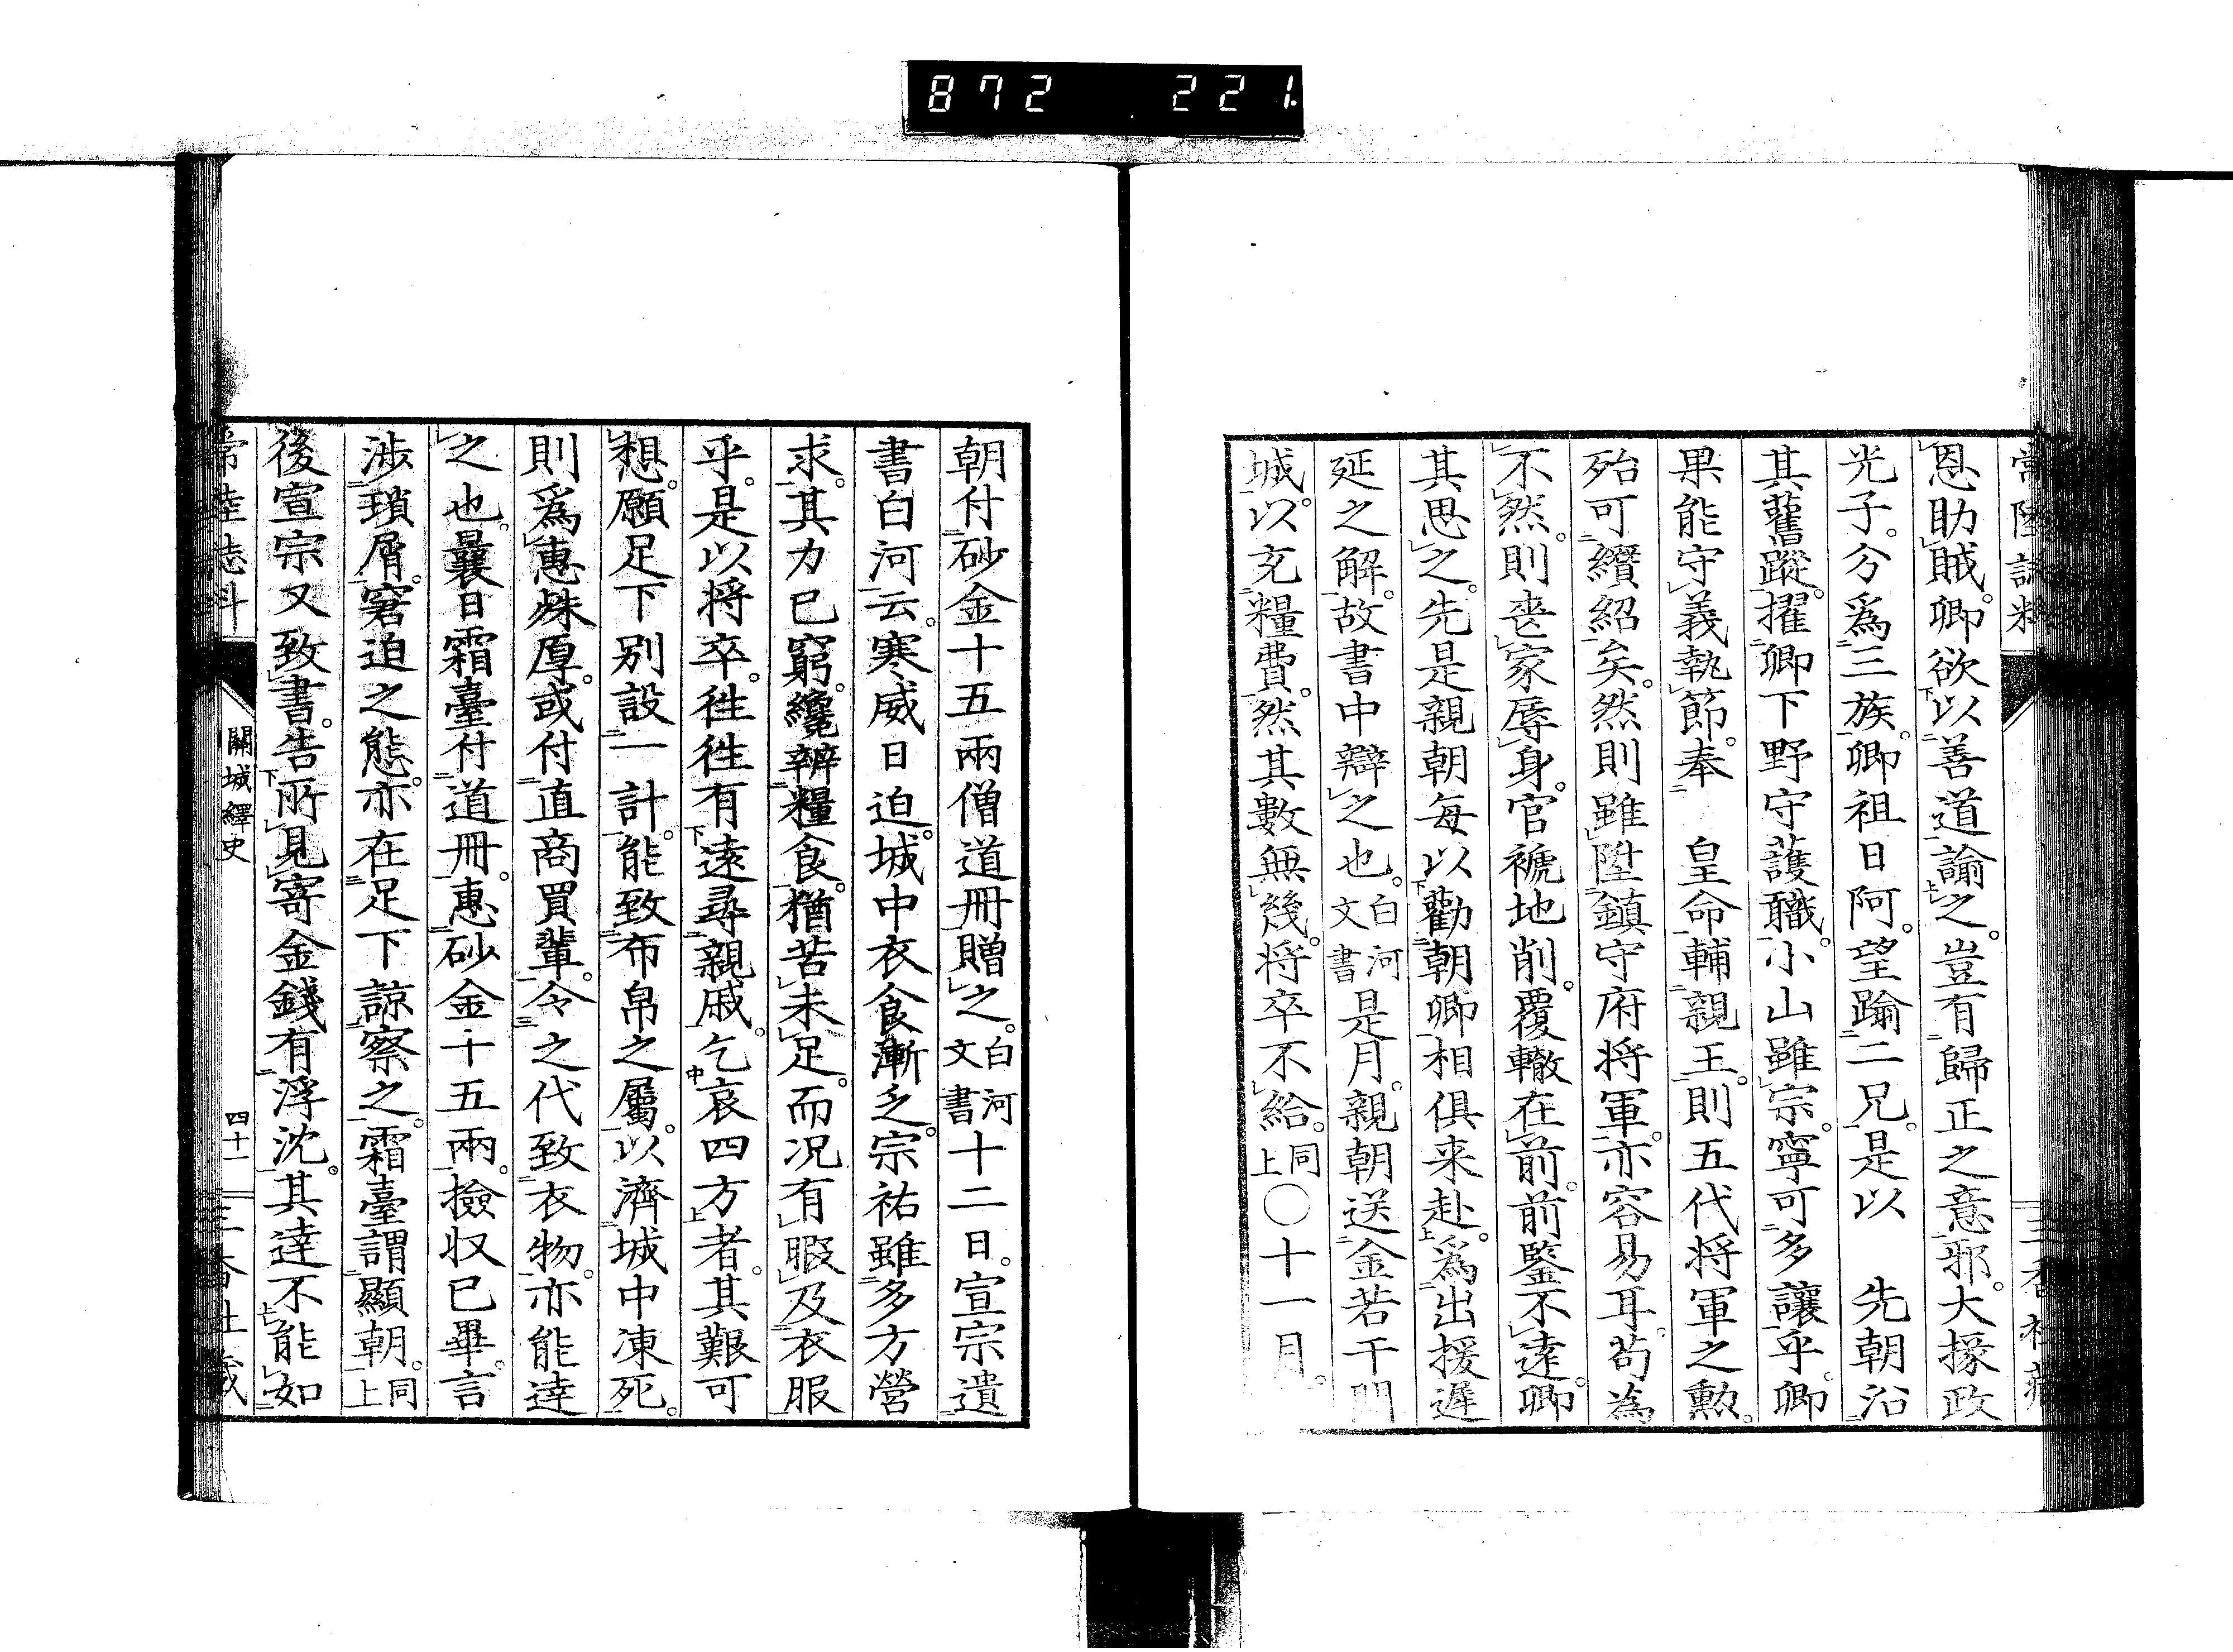 872 221.
恩助賊。卿欲以善道諭之。豈有歸正之意邪。大掾政
光子。分爲三族。卿祖日阿。望踰二兄。是以 先朝沿
其舊蹤。擢卿下野守護職。小山雖宗。寧可多讓乎。卿
果能守義執節。奉 皇命輔親王。則五代将軍之勲。
殆可纘紹矣。然則雖陞鎮守府将軍。亦容易耳。苟為
不然。則喪家辱身。官褫地削。覆轍在前。前鑒不遠。卿
其思之。先是親朝每以勸朝卿相俱来赴。爲出援遲
延之解。故書中辯之也。白河文書是月。親朝送金若干関
城。以充糧費。然其數無幾。将卒不給。同上〇十一月。
朝付砂金十五兩僧道冊贈之。白河文書十二日。宣宗遺
書白河云。寒威日迫。城中衣食漸乏。宗祐雖多方營
求。其力已窮。纔辨糧食。猶苦未足。而况有暇及衣服
乎。是以将卒。徃徃有遠尋親戚。乞哀四方者。其艱可
想。願足下別設一計。能致布帛之屬。以濟城中凍死。
則爲惠殊厚。或付直商買輩。令之代致衣物。亦能達
之也。曩日霜臺付道冊。惠砂金十五兩。撿収已畢。言
渉瑣屑。窘迫之態。亦在足下諒察之。霜臺謂顯朝。同上
後宣宗又致書。告所見寄金錢有浮沈。其達不能如
關城繹史
四十一